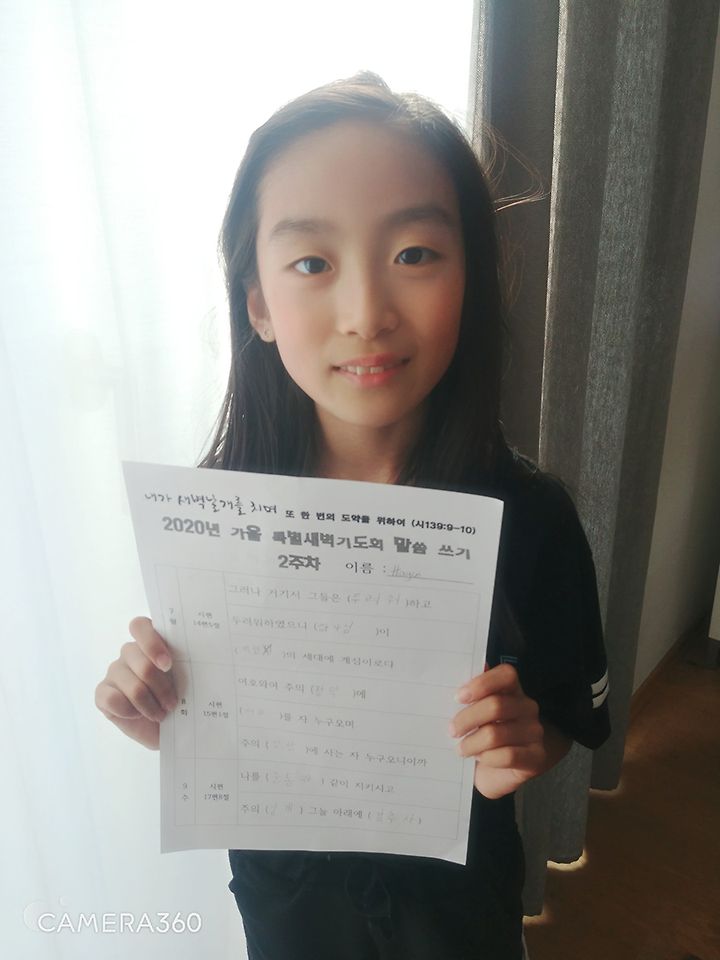 내가 새벽날개를 치며 또 한 번의 도약을 위하여 (시139:9-10)
2020년 가을 특별새벽기도회 말씀 쓰기
2주차 이름 :
7 월 시편 14편5절
그러나 거기서 그들은 (두려워)하고
두려워하였으니 (하나님)이
( )의 세대에 계심이로다
8 화 시편 15편1절
여호와여 주의 (장막)에
( )를 자 누구오며
주의 ( )에 사는 자 누구오니이까
9 수 시편 17편8절
나를 (눈동자) 같이 지키시고
주의 (날개) 그늘 아래에 (감추사)
CAMERA360